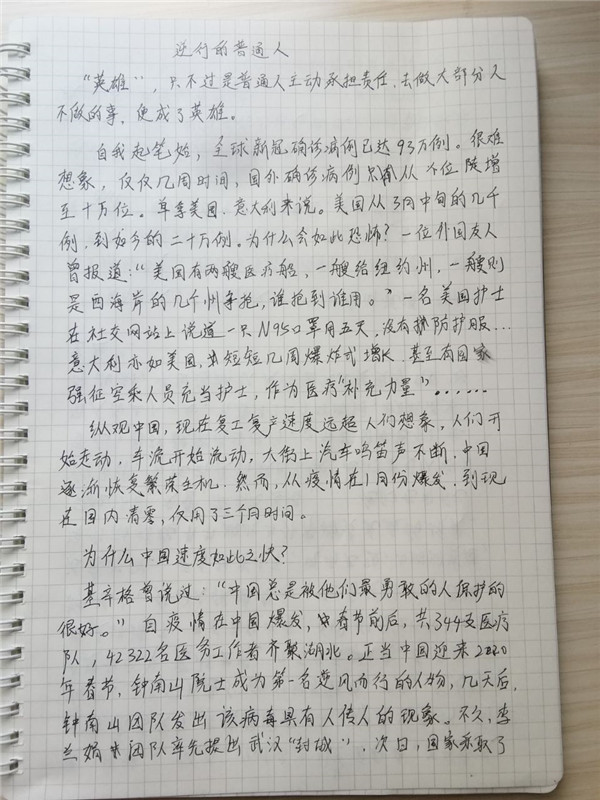 逆行的普通人
“英雄”，只不过是普通人主动承担责任，去做大部分人
不做的事，便成了英雄。
自我起笔始，全球新冠确诊病例已达93万例。很难
想象，仅仅几周时间，国外确诊病例只用从个位陡增
至十万位。单拿美国、意大利来说。美国从3月中旬的几千
例，到如今的二十万例。为什么会如此恐怖？一位外国友人
曾报道：“美国有两艘医疗船，一艘给纽约州，一艘则
是西海岸的几个州争抢，谁抢到谁用。”一名美国护士
在社交网站上说道一只N95口罩用五天，没有防护服…
意大利亦如美国，短短几周爆炸式增长，甚至有国家
强征空乘人员充当护士，作为医疗“补充力量”……
纵观中国，现在复工复产速度远超人们想象，人们开
始走动，车流开始流动，大街上汽车鸣笛声不断，中国
逐渐恢复繁荣生机。然而，从疫情在1月份爆发，到现
在国内清零，仅用了三个月时间。
为什么中国速度如此之快？
基辛格曾说过：“中国总是被他们最勇敢的人保护的
很好。”自疫情在中国爆发，春节前后，共344支医疗
队，42322名医务工作者齐聚湖北。正当中国迎来2020
年春节，钟南山院士成为第一名逆风而行的人物，几天后，
钟南山团队发出该病毒具有人传人的现象。不久，李
兰娟团队率先提出武汉“封城”，次日，国家采取了